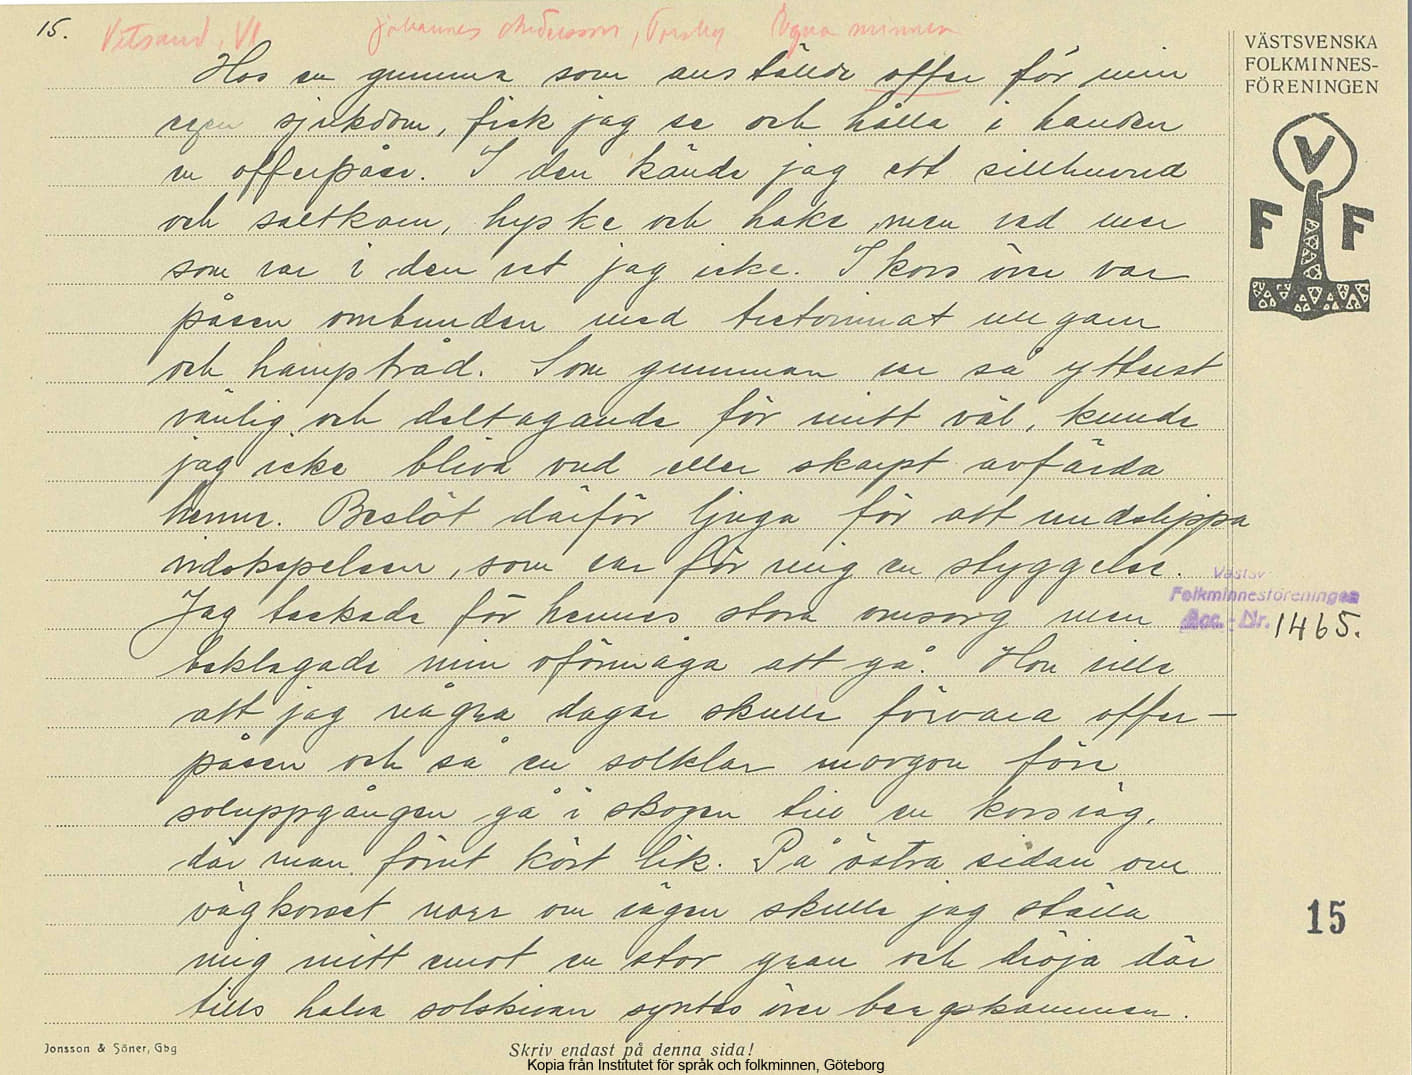 15.
Vitsand, VI
Johannes Andersson, Torsby Egna minnen
Hos en gumma som anställde offer för min
egen sjukdom, fick jag se och hålla i handen
en offerpåse. I den kände jag ett sillhuvud
och saltkorn, hyske och hake, men vad mer
som var i den vet jag icke. I kors över var
påsen ombunden med tretvinnat ullgarn
och hamptråd. Som gumman var så ytterst
vänlig och deltagande för mitt väl, kunde
jag icke bliva vred eller skarpt avfärda
henne. Beslöt därför ljuga för att undslippa
vidskepelsen, som var för mig en styggelse.
Jag tackade för hennes stora omsorg men
beklagade min oförmåga att gå. Hon ville
att jag några dagar skulle förvara offer-
påsen och så en solklar morgon före
soluppgången gå i skogen till en korsväg,
där man förut kört lik. På östra sidan om
vägkorset norr om vägen skulle jag ställa
mig mitt emot en stor gran och dröja där
tills halva solskivan syntes över bergskammen.
VÄSTSVENSKA
FOLKMINNES-
FÖRENINGEN
V
F F
Västsv
Folkminnesföreningen
Acc. - Nr. 1465.
15
Jonsson & Söner, Gbg
Skriv endast på denna sida!
Kopia från Institutet för språk och folkminnen, Göteborg